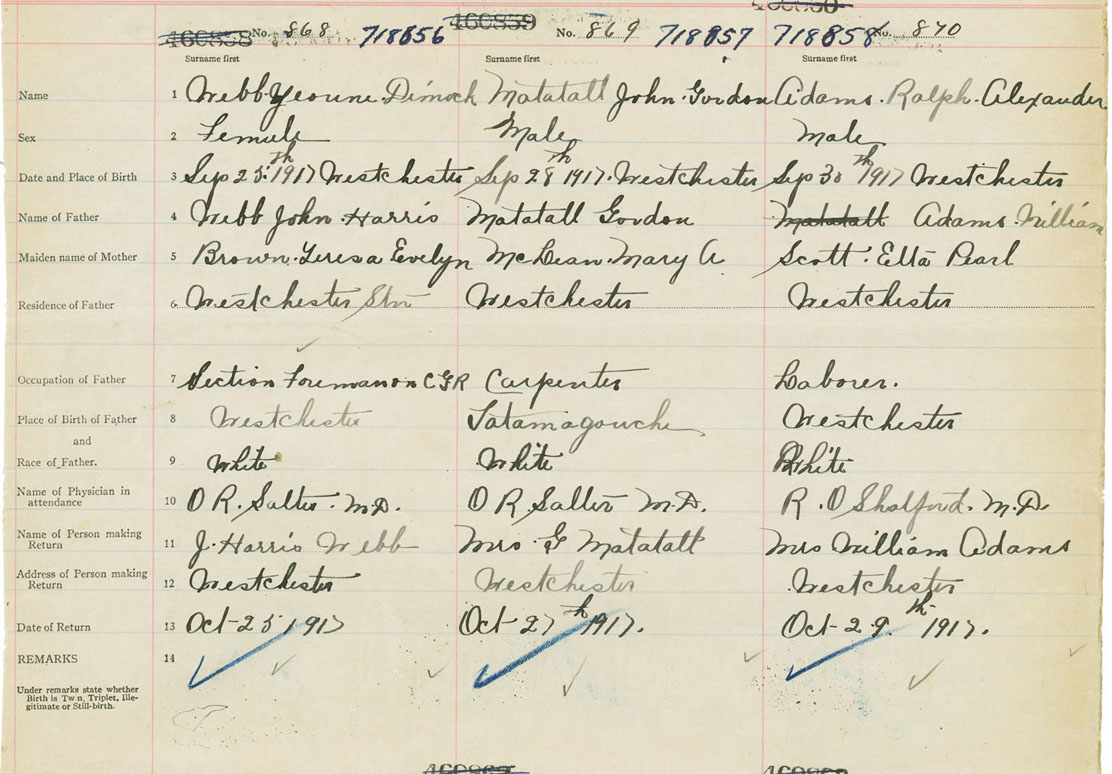 460858 No. 868 718856 460859 No. 869 718857 718858 No. 870
Surname first Surname first Surname first
Name 1 Webb Yeoune Dimock Matatall John Gordon Adams. Ralph. Alexander
Sex 2 Female Male Male
Date and Place of Birth 3 Sep 25th 1917 Westchester Sep 28th 1917. Westchester Sep 30th 1917 Westchester
Name of Father 4 Webb John Harris Matatall Gordon Matatall Adams. William
Maiden name of Mother 5 Brown. Teresa Evelyn McLean. Mary A Scott. Etta Pearl
Residence of Father 6 Westchester Stn Westchester Westchester
Occupation of Father 7 Section Foreman on CGR Carpenter Laborer.
Place of Birth of Father 8 Westchester Tatamagouche Westchester
and
Race of Father. 9 White White White
Name of Physician in
attendance 10 O R. Salter. M.D. O R. Salter M.D. R. O Shatford. M.D.
Name of Person making
Return 11 J. Harris Webb Mrs G Matatall Mrs William Adams
Address of Person making
Return 12 Westchester Westchester Westchester
Date of Return 13 Oct 25 1917 Oct-27th 1917. Oct-29th 1917.
REMARKS 14
Under remarks state whether
Birth is Twin, Triplet, Ille-
gitimate or Still-birth.